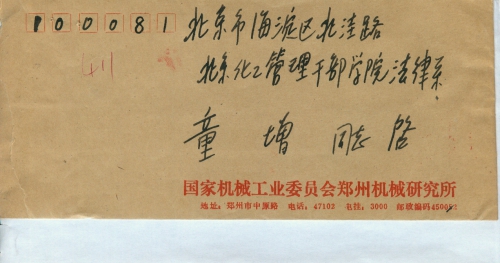 100081 北京市海淀区北洼路
北京化工管理干部学院法律系
童 增 同志 启
国家机械工业委员会郑州机械研究所
地址：郑州市中原路 电话：47102 电挂：3000 邮政编码450052